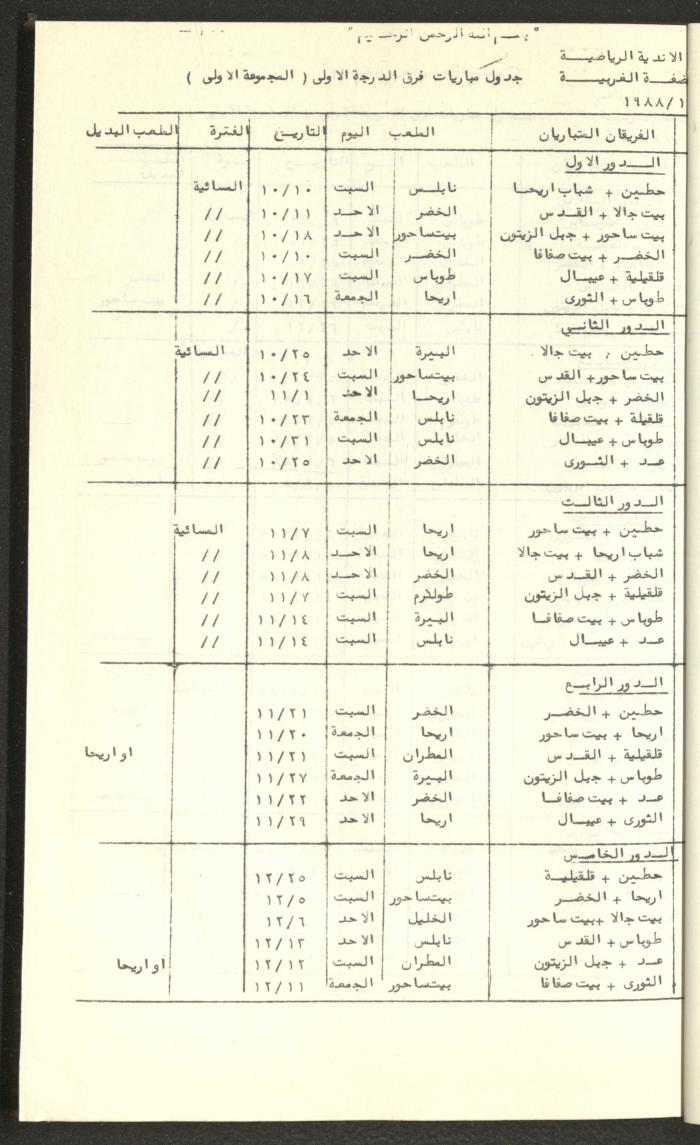 " بسم الله الرحمن الرحيم "
الاندية الرياضية
ضفة الغربية جدول مباريات فرق الدرجة الاولى ( المجموعة الاولى )
١٩٨٨/١
الفريقان المتباريان الملعب اليوم التاريخ الفترة الملعب البديل
الدور الاول
حطين + شباب اريحا نابلس السبت ١٠/١٠ المسائية
بيت جالا + القدس الخضر الاحد ١٠/١١ //
بيت ساحور + جبل الزيتون بيتساحور الاحد ١٠/١٨ //
الخضر + بيت صفافا الخضر السبت ١٠/١٠ //
قلقيلية + عيبال طوباس السبت ١٠/١٧ //
طوباس + الثورى اريحا الجمعة ١٠/١٦ //
الدور الثاني
حطين + بيت جالا البيرة الاحد ١٠/٢٥ المسائية
بيت ساحور + القدس بيتساحور السبت ١٠/٢٤ //
الخضر + جبل الزيتون اريحا الاحد ١١/١ //
قلقيلة + بيت صفافا نابلس الجمعة ١٠/٢٣ //
طوباس + عيبال نابلس السبت ١٠/٣١ //
عد + الثورى الخضر الاحد ١٠/٢٥ //
الدور الثالث
حطين + بيت ساحور اريحا السبت ١١/٧ المسائية
شباب اريحا + بيت جالا اريحا الاحد ١١/٨ //
الخضر + القدس الخضر الاحد ١١/٨ //
قلقيلية + جبل الزيتون طولكرم السبت ١١/٧ //
طوباس + بيت صفافا البيرة السبت ١١/١٤ //
عد + عيبال نابلس السبت ١١/١٤ //
الدور الرابع
حطين + الخضر الخضر السبت ١١/٢١
اريحا + بيت ساحور اريحا الجمعة ١١/٢٠
قلقيلية + القدس المطران السبت ١١/٢١ او اريحا
طوباس + جبل الزيتون البيرة الجمعة ١١/٢٧
عد + بيت صفافا الخضر الاحد ١١/٢٢
الثورى + عيبال اريحا الاحد ١١/٢٩
الدور الخامس
حطين + قلقيلية نابلس السبت ١٢/٢٥
اريحا + الخضر بيتساحور السبت ١٢/٥
بيت جالا + بيت ساحور الخليل الاحد ١٢/٦
طوباس + القدس نابلس الاحد ١٢/١٣
عد + جبل الزيتون المطران السبت ١٢/١٢ او اريحا
الثورى + بيت صفافا بيتساحور الجمعة ١٢/١١